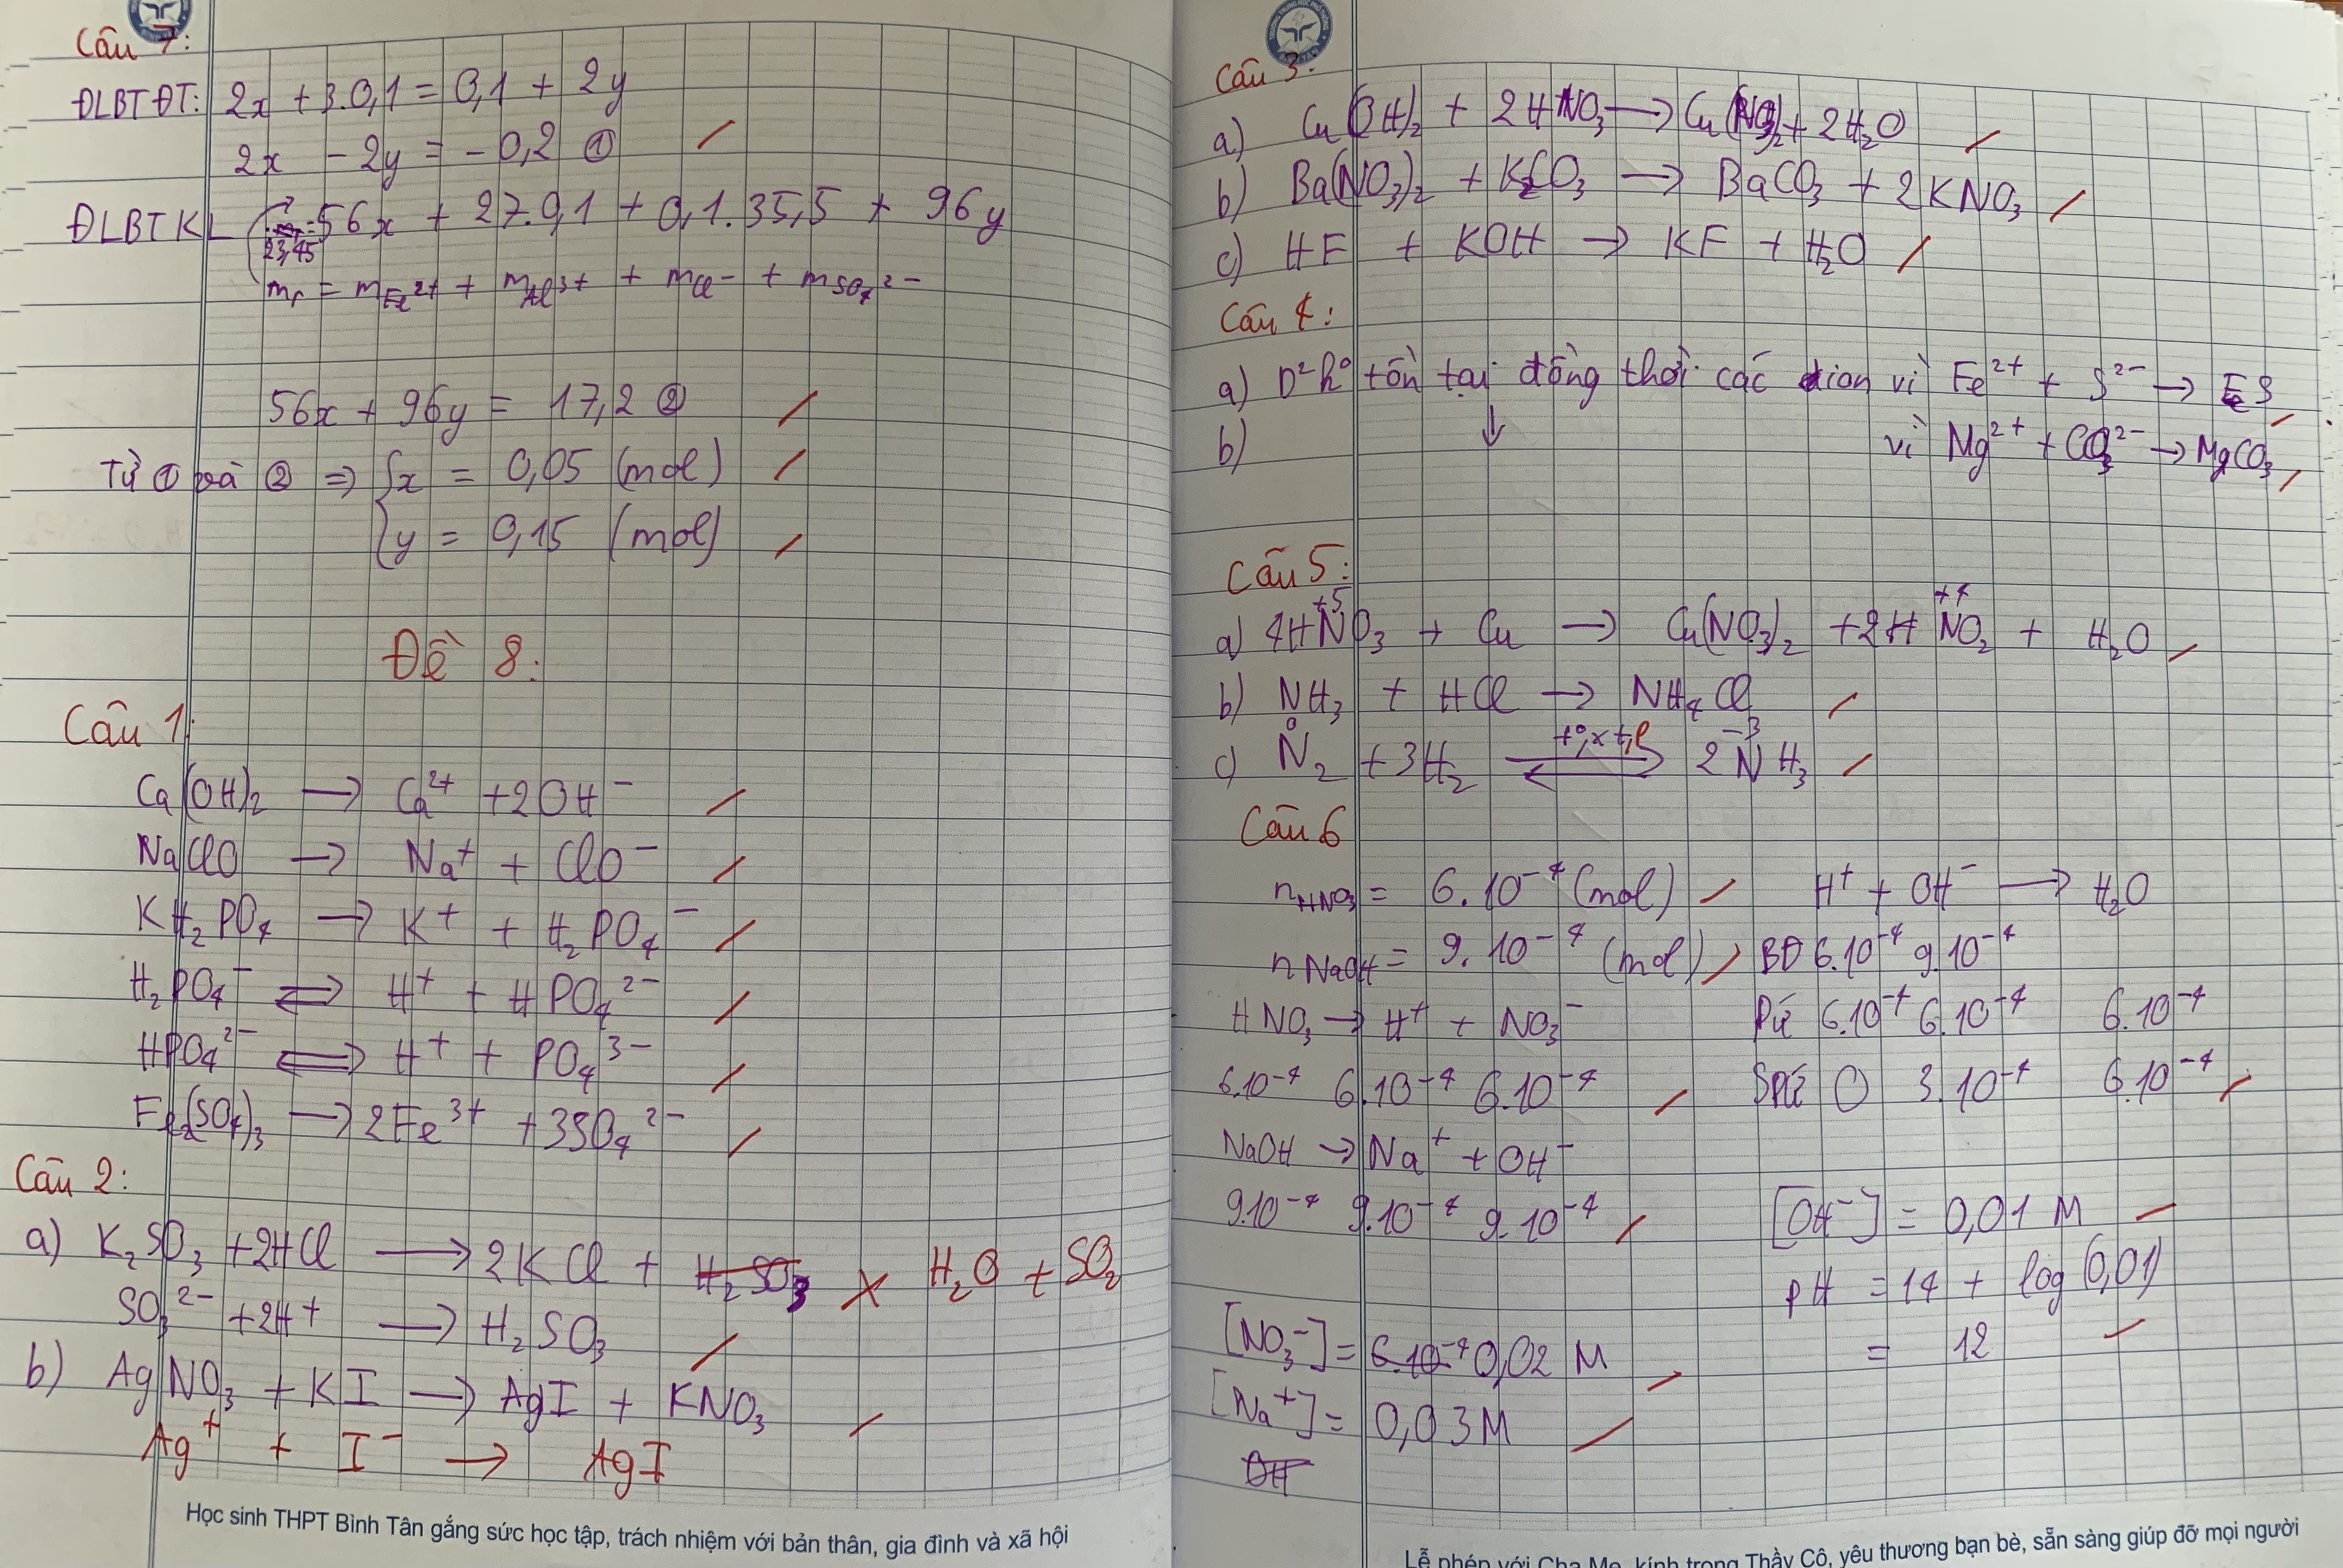 Câu 7:
ĐLBTĐT: 2x + 3.0,1 = 0,1 + 2y
2x - 2y = -0,2 ①
ĐLBTKL 23,45 = 56x + 27.0,1 + 0,1.35,5 + 96y
mr = mFe²⁺ + mAl³⁺ + mCl⁻ + mSO₄²⁻
56x + 96y = 17,2 ②
Từ ① và ② => { x = 0,05 (mol)
y = 0,15 (mol)
Đề 8:
Câu 1:
Ca(OH)₂ → Ca²⁺ + 2OH⁻
NaClO → Na⁺ + ClO⁻
KH₂PO₄ → K⁺ + H₂PO₄⁻
H₂PO₄⁻ ⇌ H⁺ + HPO₄²⁻
HPO₄²⁻ ⇌ H⁺ + PO₄³⁻
Fe₂(SO₄)₃ → 2Fe³⁺ + 3SO₄²⁻
Câu 2:
a) K₂SO₃ + 2HCl → 2KCl + H₂SO₃ × H₂O + SO₂
SO₃²⁻ + 2H⁺ → H₂SO₃
b) AgNO₃ + KI → AgI + KNO₃
Ag⁺ + I⁻ → AgI
Học sinh THPT Bình Tân gắng sức học tập, trách nhiệm với bản thân, gia đình và xã hội
Câu 3:
a) Cu(OH)₂ + 2HNO₃ → Cu(NO₃)₂ + 2H₂O
b) Ba(NO₃)₂ + K₂CO₃ → BaCO₃ + 2KNO₃
c) HF + KOH → KF + H₂O
Câu 4:
a) D² k° tồn tại đồng thời các ion vì Fe²⁺ + S²⁻ → FeS
b) ↓ vì Mg²⁺ + CO₃²⁻ → MgCO₃
Câu 5:
+5 +4
a) 4HNO₃ + Cu → Cu(NO₃)₂ + 2H NO₂ + H₂O
b) NH₃ + HCl → NH₄Cl
0 t°, xt, p -3
c) N₂ + 3H₂ ⇌ 2NH₃
Câu 6
nHNO₃ = 6.10⁻⁴ (mol) H⁺ + OH⁻ → H₂O
nNaOH = 9.10⁻⁴ (mol) BĐ 6.10⁻⁴ 9.10⁻⁴
HNO₃ → H⁺ + NO₃⁻ Pứ 6.10⁻⁴ 6.10⁻⁴ 6.10⁻⁴
6.10⁻⁴ 6.10⁻⁴ 6.10⁻⁴ Spứ 0 3.10⁻⁴ 6.10⁻⁴
NaOH → Na⁺ + OH⁻
9.10⁻⁴ 9.10⁻⁴ 9.10⁻⁴ [OH⁻] = 0,01 M
pH = 14 + log(0,01)
[NO₃⁻] = 6.10⁻⁴ 0,02 M = 12
[Na⁺] = 0,03M
OH
Lễ phép với Cha Mẹ, kính trọng Thầy Cô, yêu thương bạn bè, sẵn sàng giúp đỡ mọi người